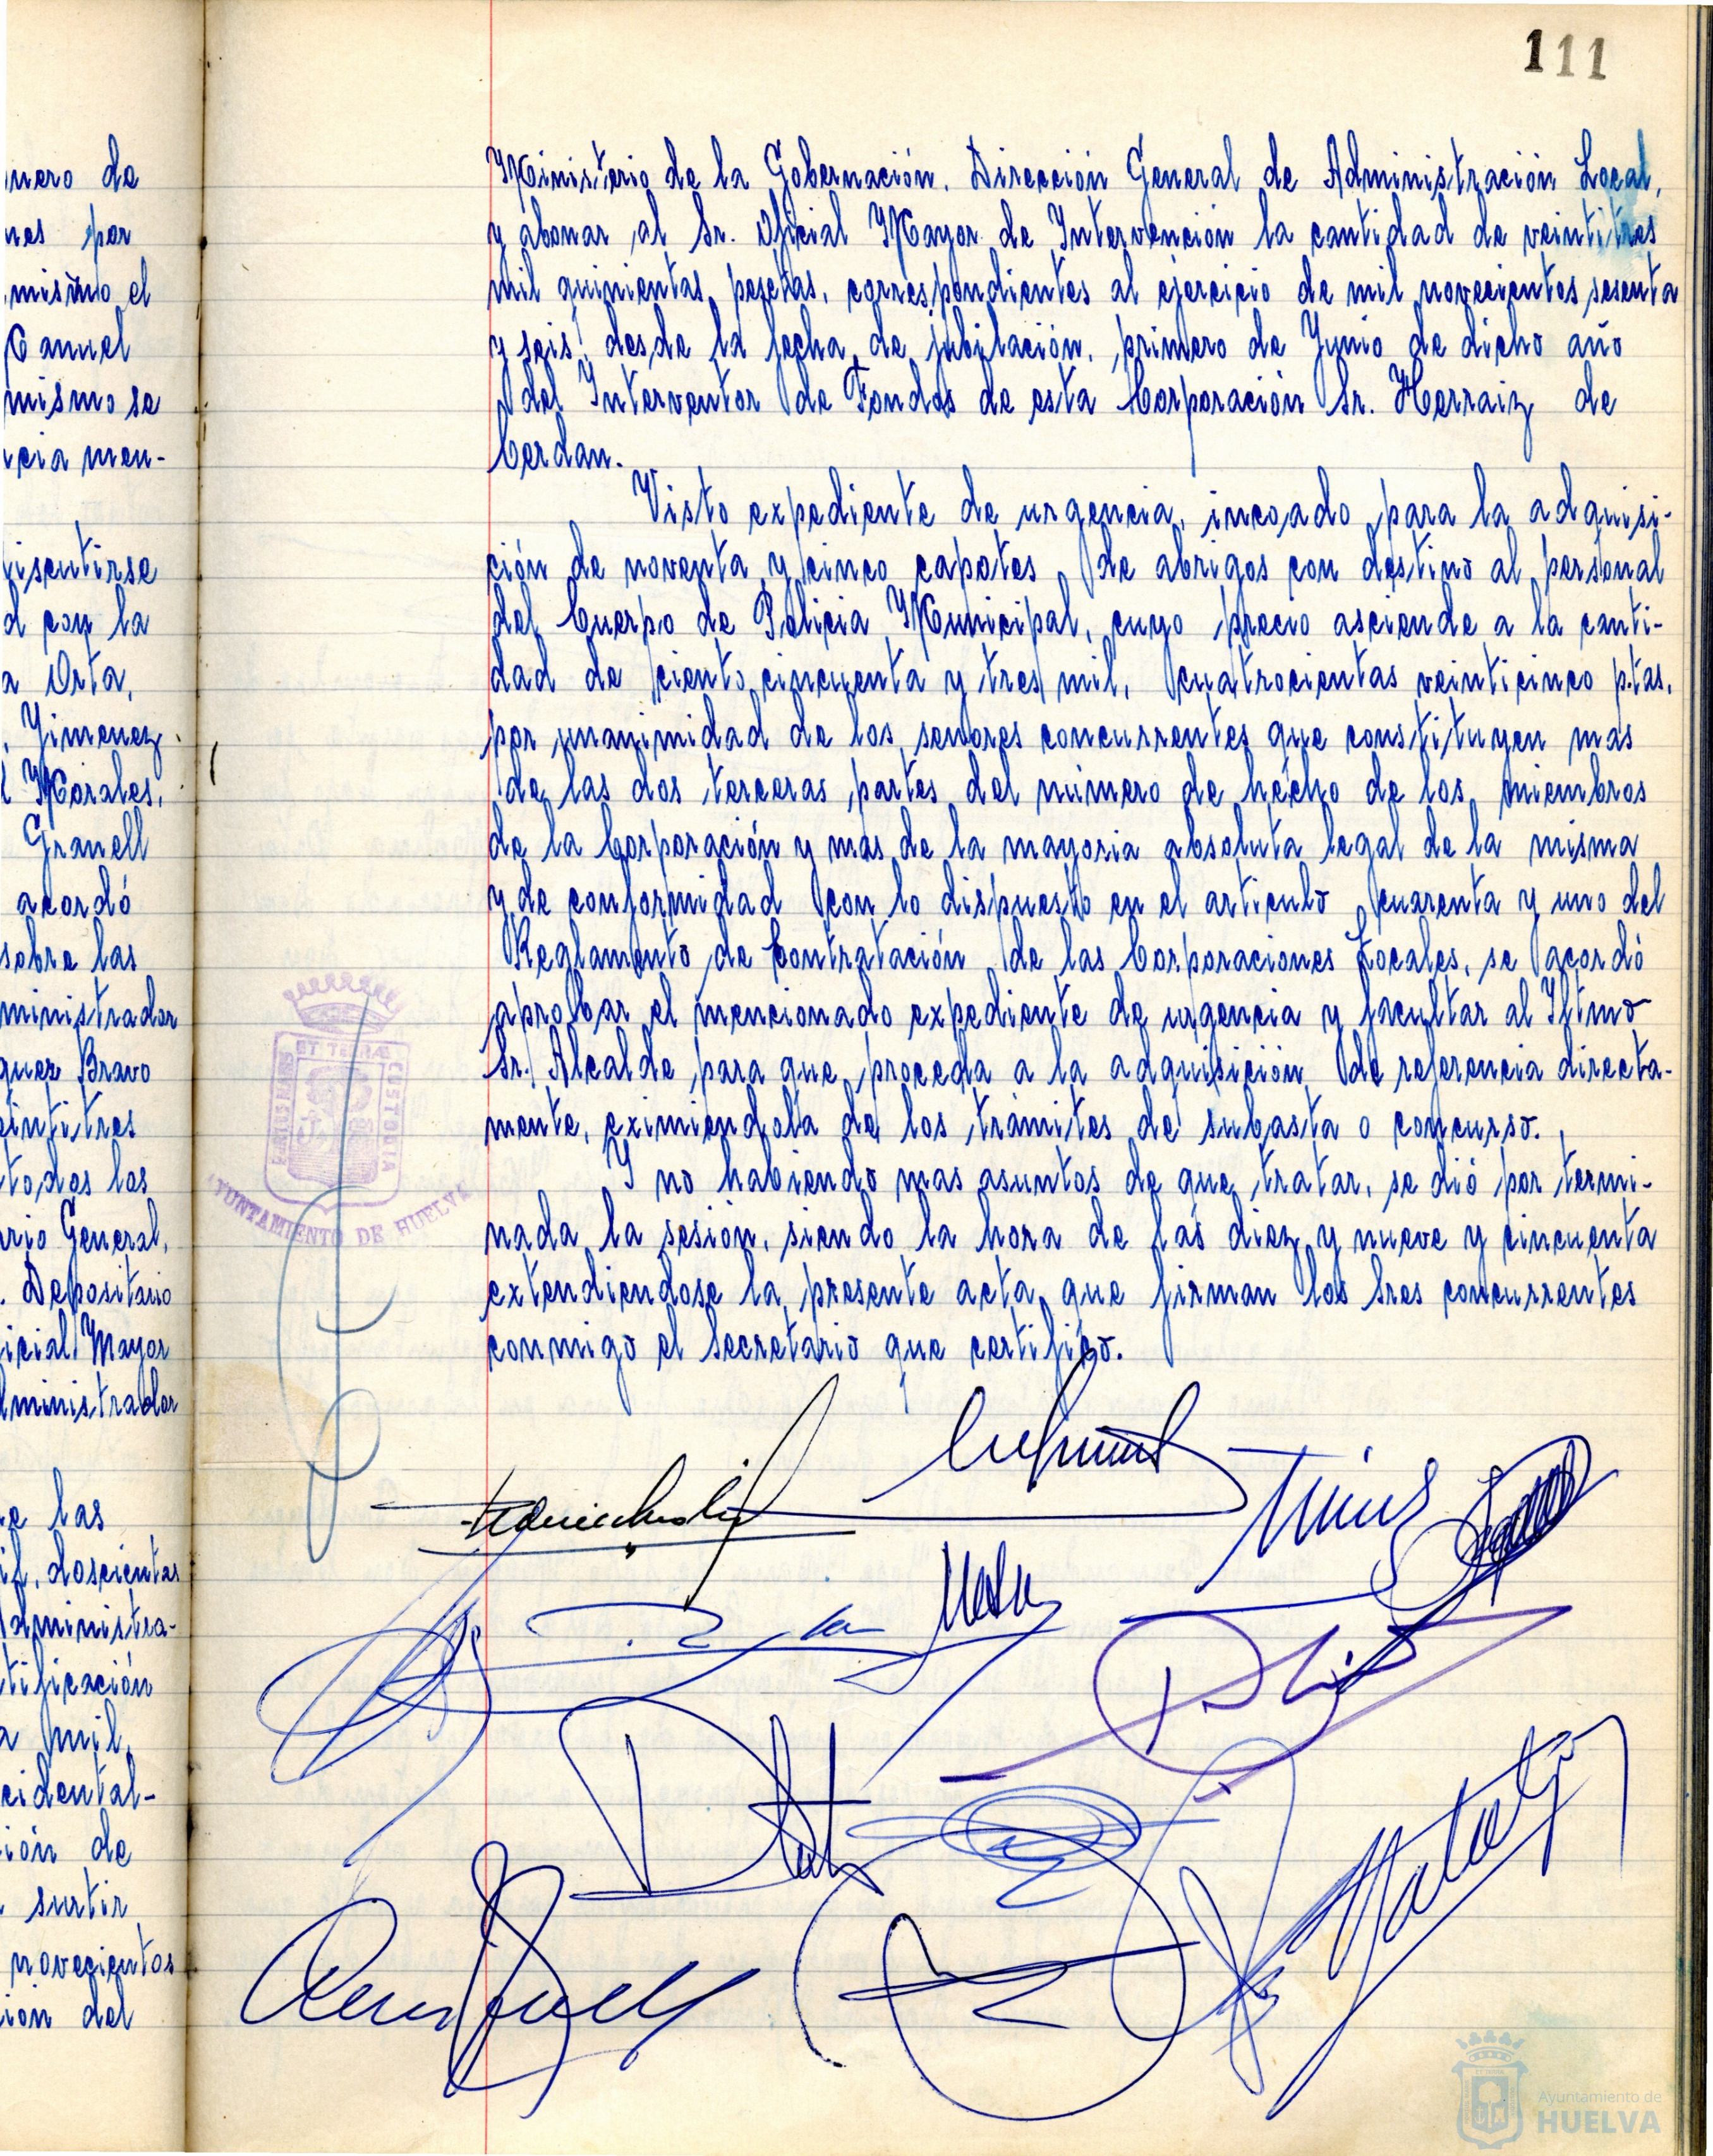 111
nero de
nes por
mismo el
Manuel
mismo se
ncia men-
isentirse
d con la
a Orta,
, Jimenez
l Morales,
Granell
acordó
sobre las
ministrador
guez Bravo
eintitres
todos los
ario General,
. Depositario
icial Mayor
dministrador
e las
il, doscientas
administra-
tificación
a mil,
cidental-
ión de
surtir
novecientos
ion del
Ministerio de la Gobernación. Dirección General de Administración Local,
y abonar al Sr. Oficial Mayor de Intervención la cantidad de veintitres
mil quinientas pesetas, correspondientes al ejercicio de mil novecientos sesenta
y seis, desde la fecha de jubilación, primero de Junio de dicho año
del Interventor de Fondos de esta Corporación Sr. Herraiz de
Cerdan.
Visto expediente de urgencia, incoado para la adquisi-
ción de noventa y cinco capotes de abrigos con destino al personal
del Cuerpo de Policia Municipal, cuyo precio asciende a la canti-
dad de ciento cincuenta y tres mil, cuatrocientas veinticinco ptas,
por unanimidad de los señores concurrentes que constituyen mas
de las dos terceras partes del número de hecho de los miembros
de la Corporación y mas de la mayoria absoluta legal de la misma
y de conformidad con lo dispuesto en el articulo cuarenta y uno del
Reglamento de Contratación de las Corporaciones Locales, se acordó
aprobar el mencionado expediente de urgencia y facultar al Iltmo
Sr. Alcalde para que proceda a la adquisición de referencia directa-
mente, eximiendola de los trámites de subasta o concurso.
Y no habiendo mas asuntos de que tratar, se dió por termi-
nada la sesión, siendo la hora de las diez y nueve y cincuenta
extendiendose la presente acta que firman los Sres concurrentes
conmigo el Secretario que certifico.
PORTUS MARIS
ET TERRAE
CUSTODIA
AYUNTAMIENTO DE HUELVA
Ayuntamiento de
HUELVA